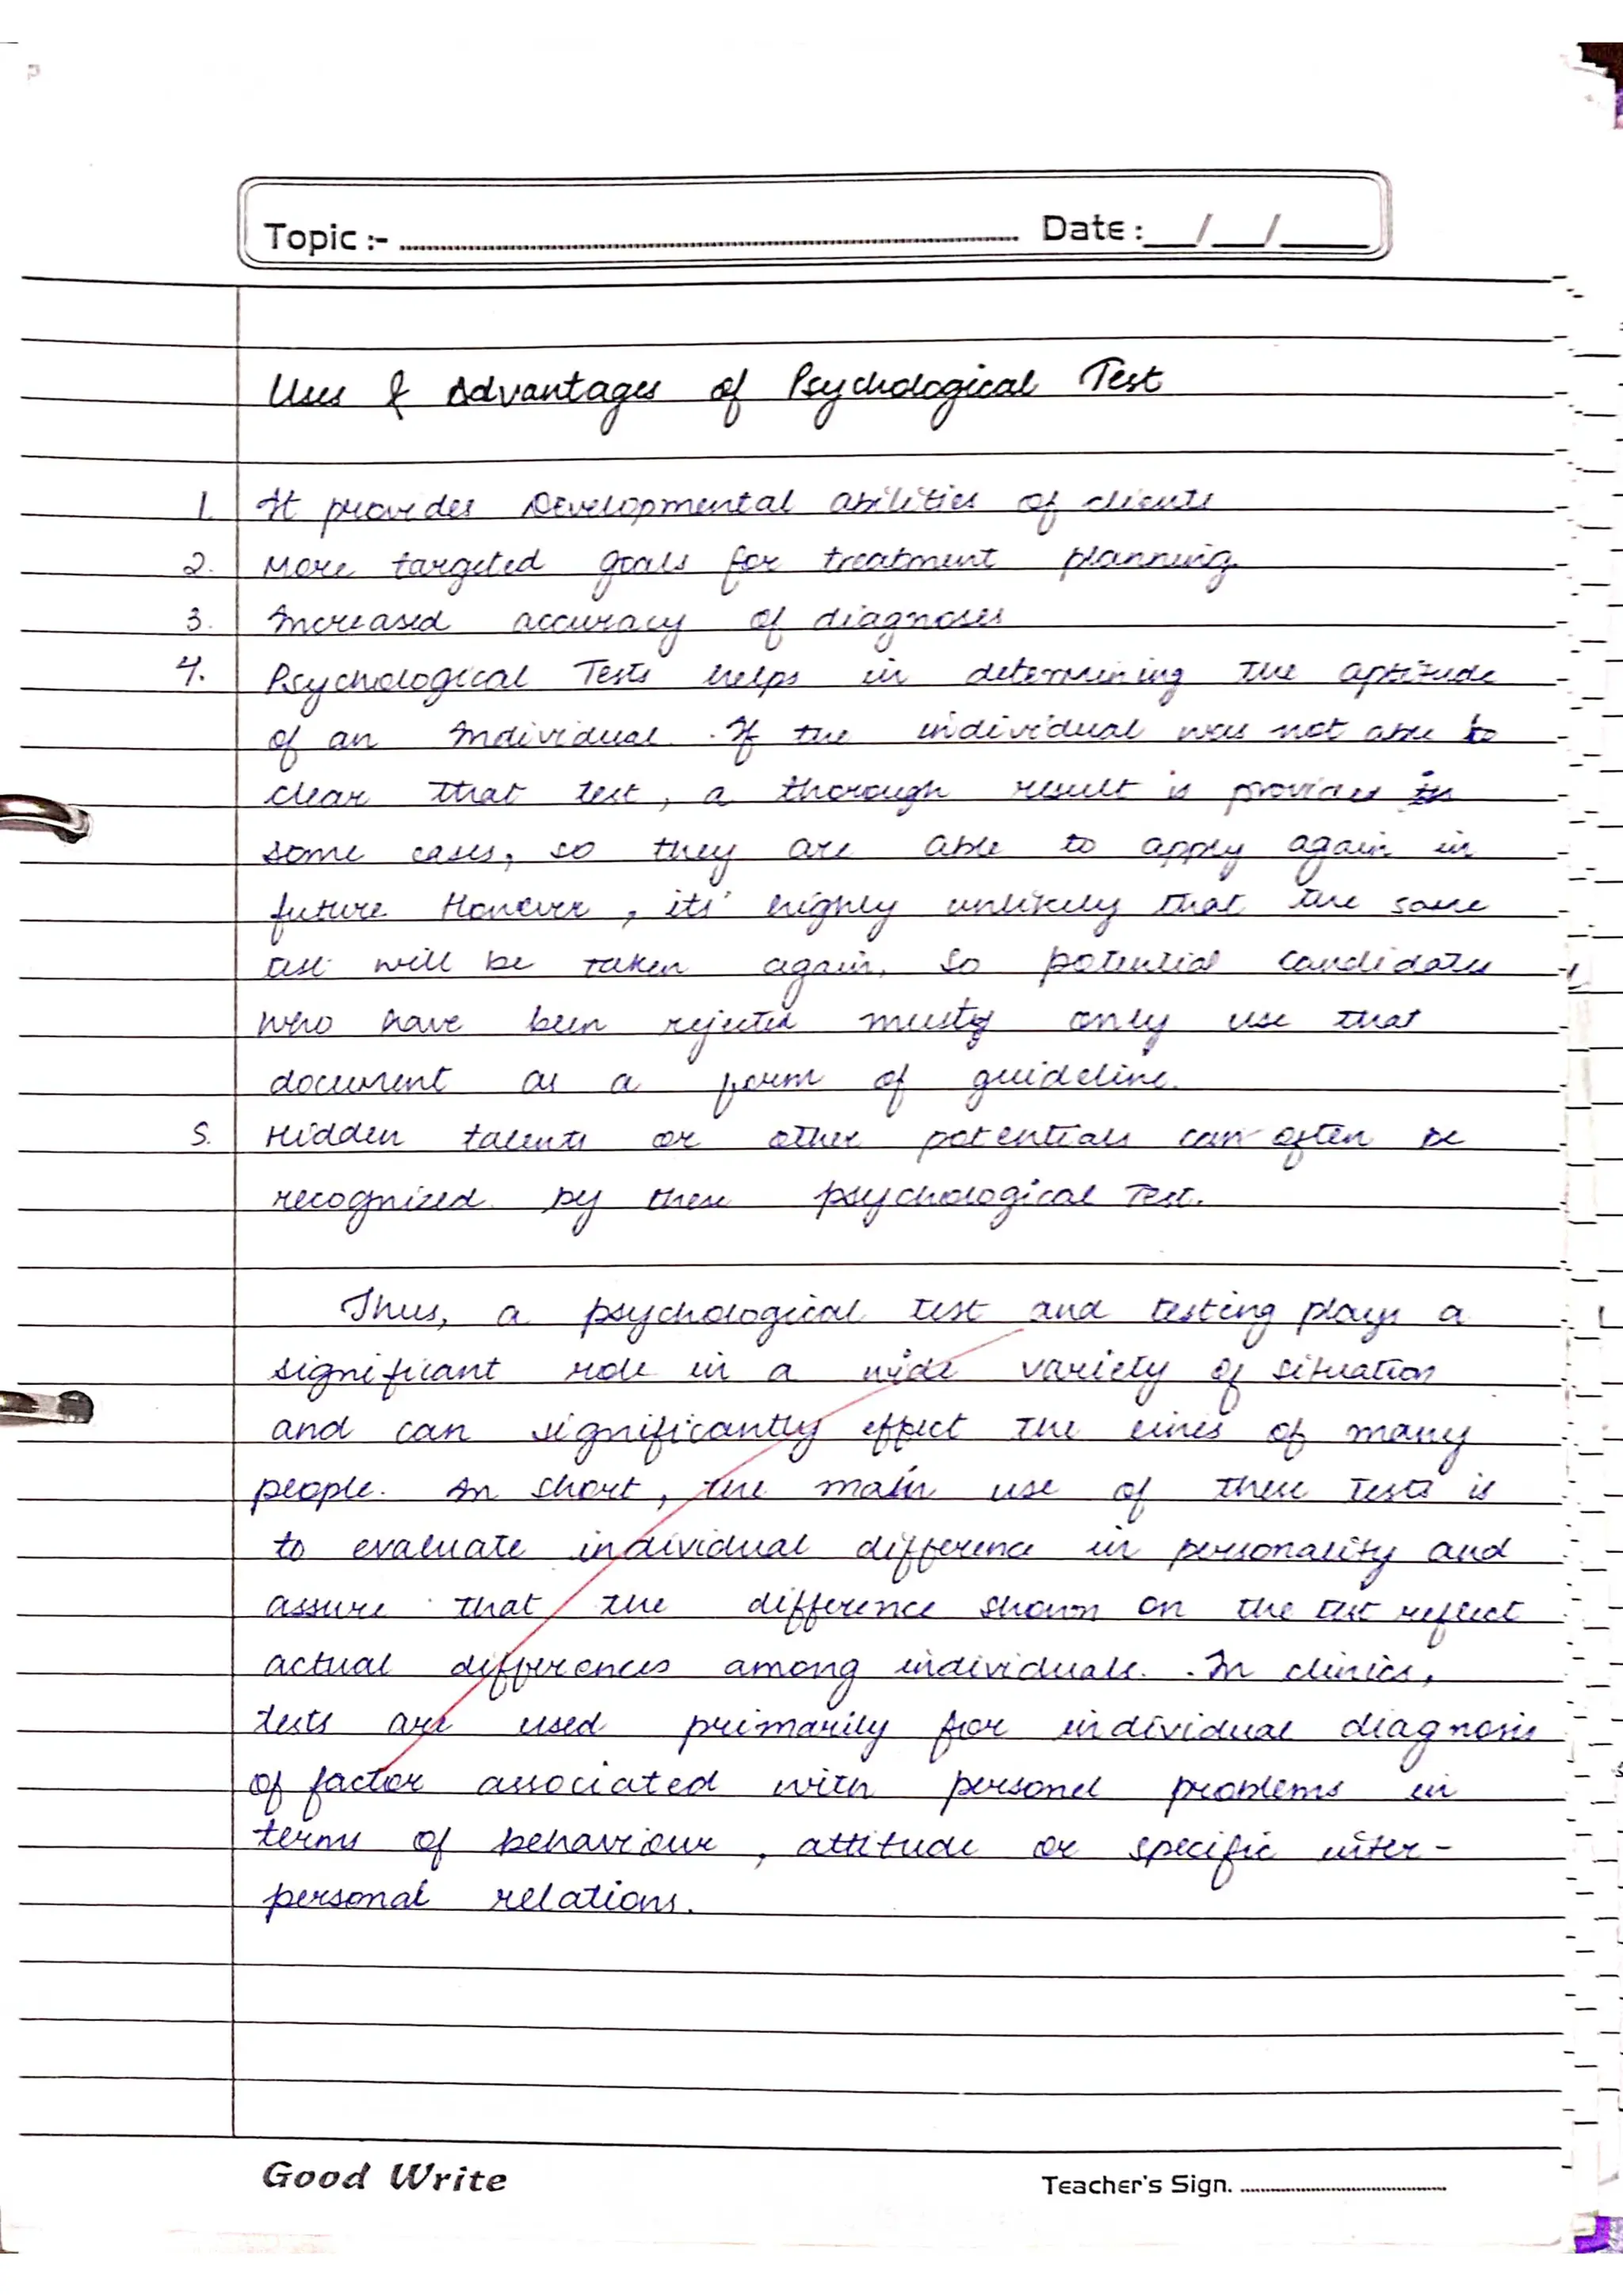 Topic :- Date : __/__/____
Uses & Advantages of Psychological Test
1. It provides Developmental abilities of clients
2. More targeted goals for treatment planning
3. Increased accuracy of diagnoses
4. Psychological Tests helps in determining the aptitude
of an Individual. If the individual was not able to
clear that test, a thorough result is provided in
some cases, so they are able to apply again in
future However, its' highly unlikely that the same
test will be taken again, so potential candidates
who have been rejected must only use that
document as a form of guideline.
5. Hidden talents or other potentials can often be
recognized by these psychological Test.
Thus, a psychological test and testing plays a
significant role in a wide variety of situation
and can significantly effect the lives of many
people. In short, the main use of these tests is
to evaluate individual difference in personality and
assure that the difference shown on the test reflect
actual differences among individuals. In clinics,
tests are used primarily for individual diagnosis
of factor associated with personel problems in
terms of behaviour, attitude or specific inter-
personal relations.
Good Write Teacher's Sign.